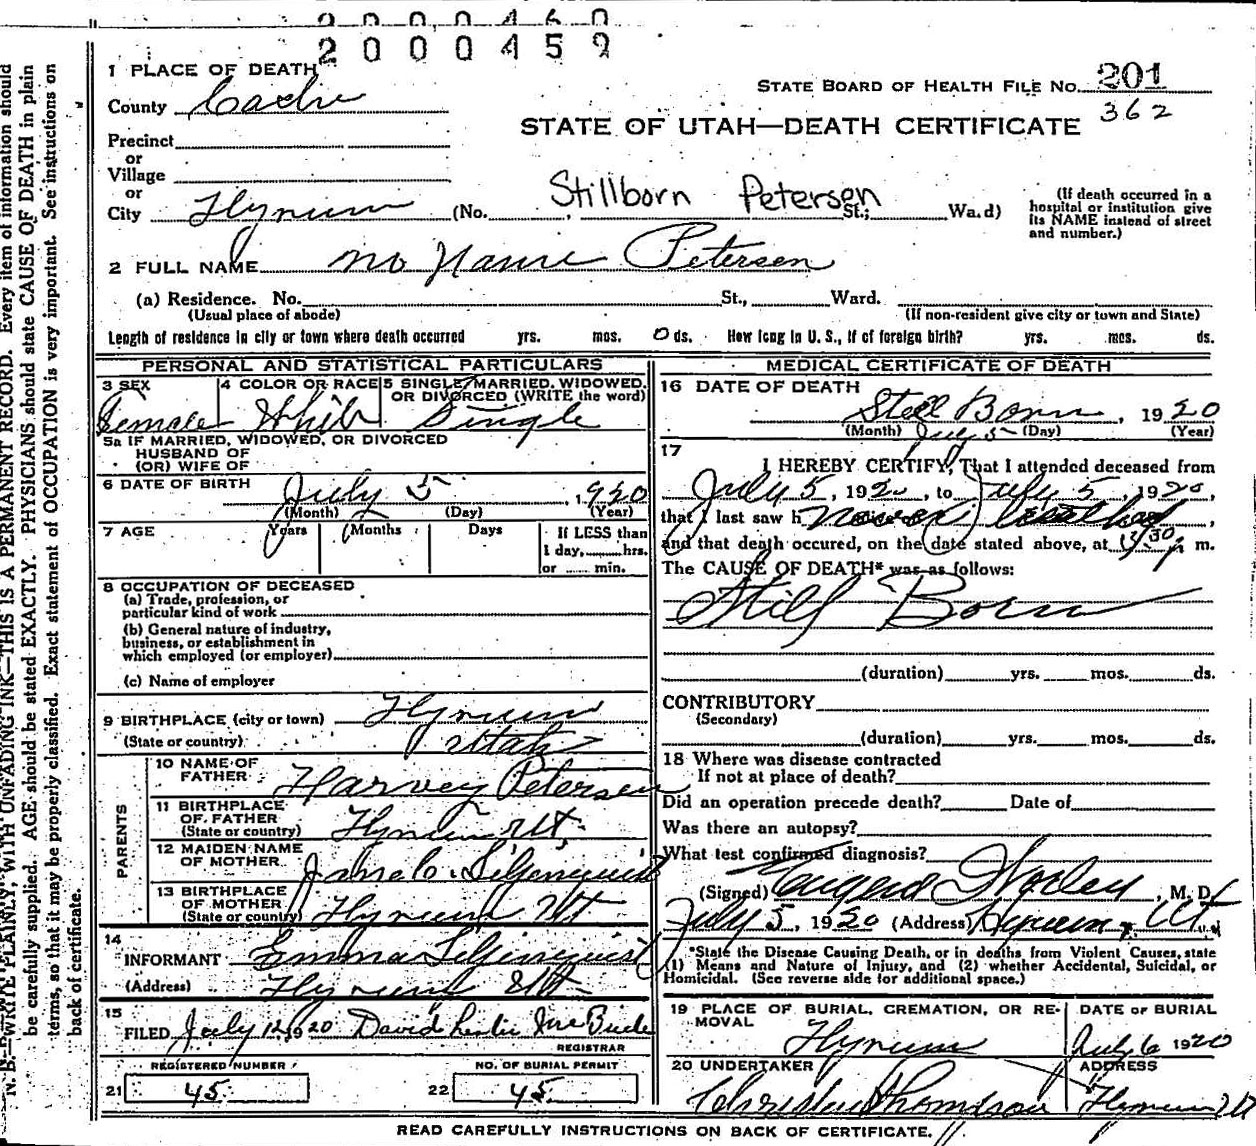 2000460
2000459
1 PLACE OF DEATH
County Cache
STATE BOARD OF HEALTH FILE No. 201
362
STATE OF UTAH—DEATH CERTIFICATE
Precinct
or
Village
or
City Hyrum (No. , Stillborn Petersen St.; Wa.d)
(If death occurred in a hospital or institution give its NAME instead of street and number.)
2 FULL NAME no Name Petersen
(a) Residence. No. St., Ward.
(Usual place of abode) (If non-resident give city or town and State)
Length of residence in city or town where death occurred yrs. mos. 0 ds. How long in U. S., if of foreign birth? yrs. mos. ds.
PERSONAL AND STATISTICAL PARTICULARS
3 SEX 4 COLOR OR RACE 5 SINGLE, MARRIED, WIDOWED,
OR DIVORCED (WRITE the word)
Female White Single
5a IF MARRIED, WIDOWED, OR DIVORCED
HUSBAND OF
(OR) WIFE OF
6 DATE OF BIRTH July 5 , 1920
(Month) (Day) (Year)
7 AGE Years Months Days If LESS than
1 day, hrs.
or min.
8 OCCUPATION OF DECEASED
(a) Trade, profession, or
particular kind of work
(b) General nature of industry,
business, or establishment in
which employed (or employer)
(c) Name of employer
9 BIRTHPLACE (city or town) Hyrum
(State or country) Utah
PARENTS
10 NAME OF
FATHER Harvey Petersen
11 BIRTHPLACE
OF FATHER
(State or country) Hyrum Ut.
12 MAIDEN NAME
OF MOTHER
13 BIRTHPLACE
OF MOTHER
(State or country) Hyrum Ut
14
INFORMANT Emma Liljenquist
(Address) Hyrum Ut
15
FILED July 12, 1920 David Leslie
REGISTRAR
REGISTERED NUMBER NO. OF BURIAL PERMIT
21 45 22 45
MEDICAL CERTIFICATE OF DEATH
16 DATE OF DEATH
Still Born , 1920
(Month) July 5 (Day) (Year)
17
I HEREBY CERTIFY, That I attended deceased from
July 5, 1920, to July 5, 1920,
that I last saw h never breathed,
and that death occured, on the date stated above, at 30 p m.
The CAUSE OF DEATH* was as follows:
Still Born
(duration) yrs. mos. ds.
CONTRIBUTORY
(Secondary)
(duration) yrs. mos. ds.
18 Where was disease contracted
If not at place of death?
Did an operation precede death? Date of
Was there an autopsy?
What test confirmed diagnosis?
(Signed) Worley, M. D.
July 5, 1920 (Address) Hyrum, Ut.
*State the Disease Causing Death, or in deaths from Violent Causes, state
(1) Means and Nature of Injury, and (2) whether Accidental, Suicidal, or
Homicidal. (See reverse side for additional space.)
19 PLACE OF BURIAL, CREMATION, OR RE-
MOVAL Hyrum
DATE OF BURIAL
July 6 1920
20 UNDERTAKER
ADDRESS
Thomson Hyrum Ut
READ CAREFULLY INSTRUCTIONS ON BACK OF CERTIFICATE.
N. B.—WRITE PLAINLY, WITH UNFADING INK—THIS IS A PERMANENT RECORD. Every item of information should
be carefully supplied. AGE should be stated EXACTLY. PHYSICIANS should state CAUSE OF DEATH in plain
terms, so that it may be properly classified. Exact statement of OCCUPATION is very important. See instructions on
back of certificate.